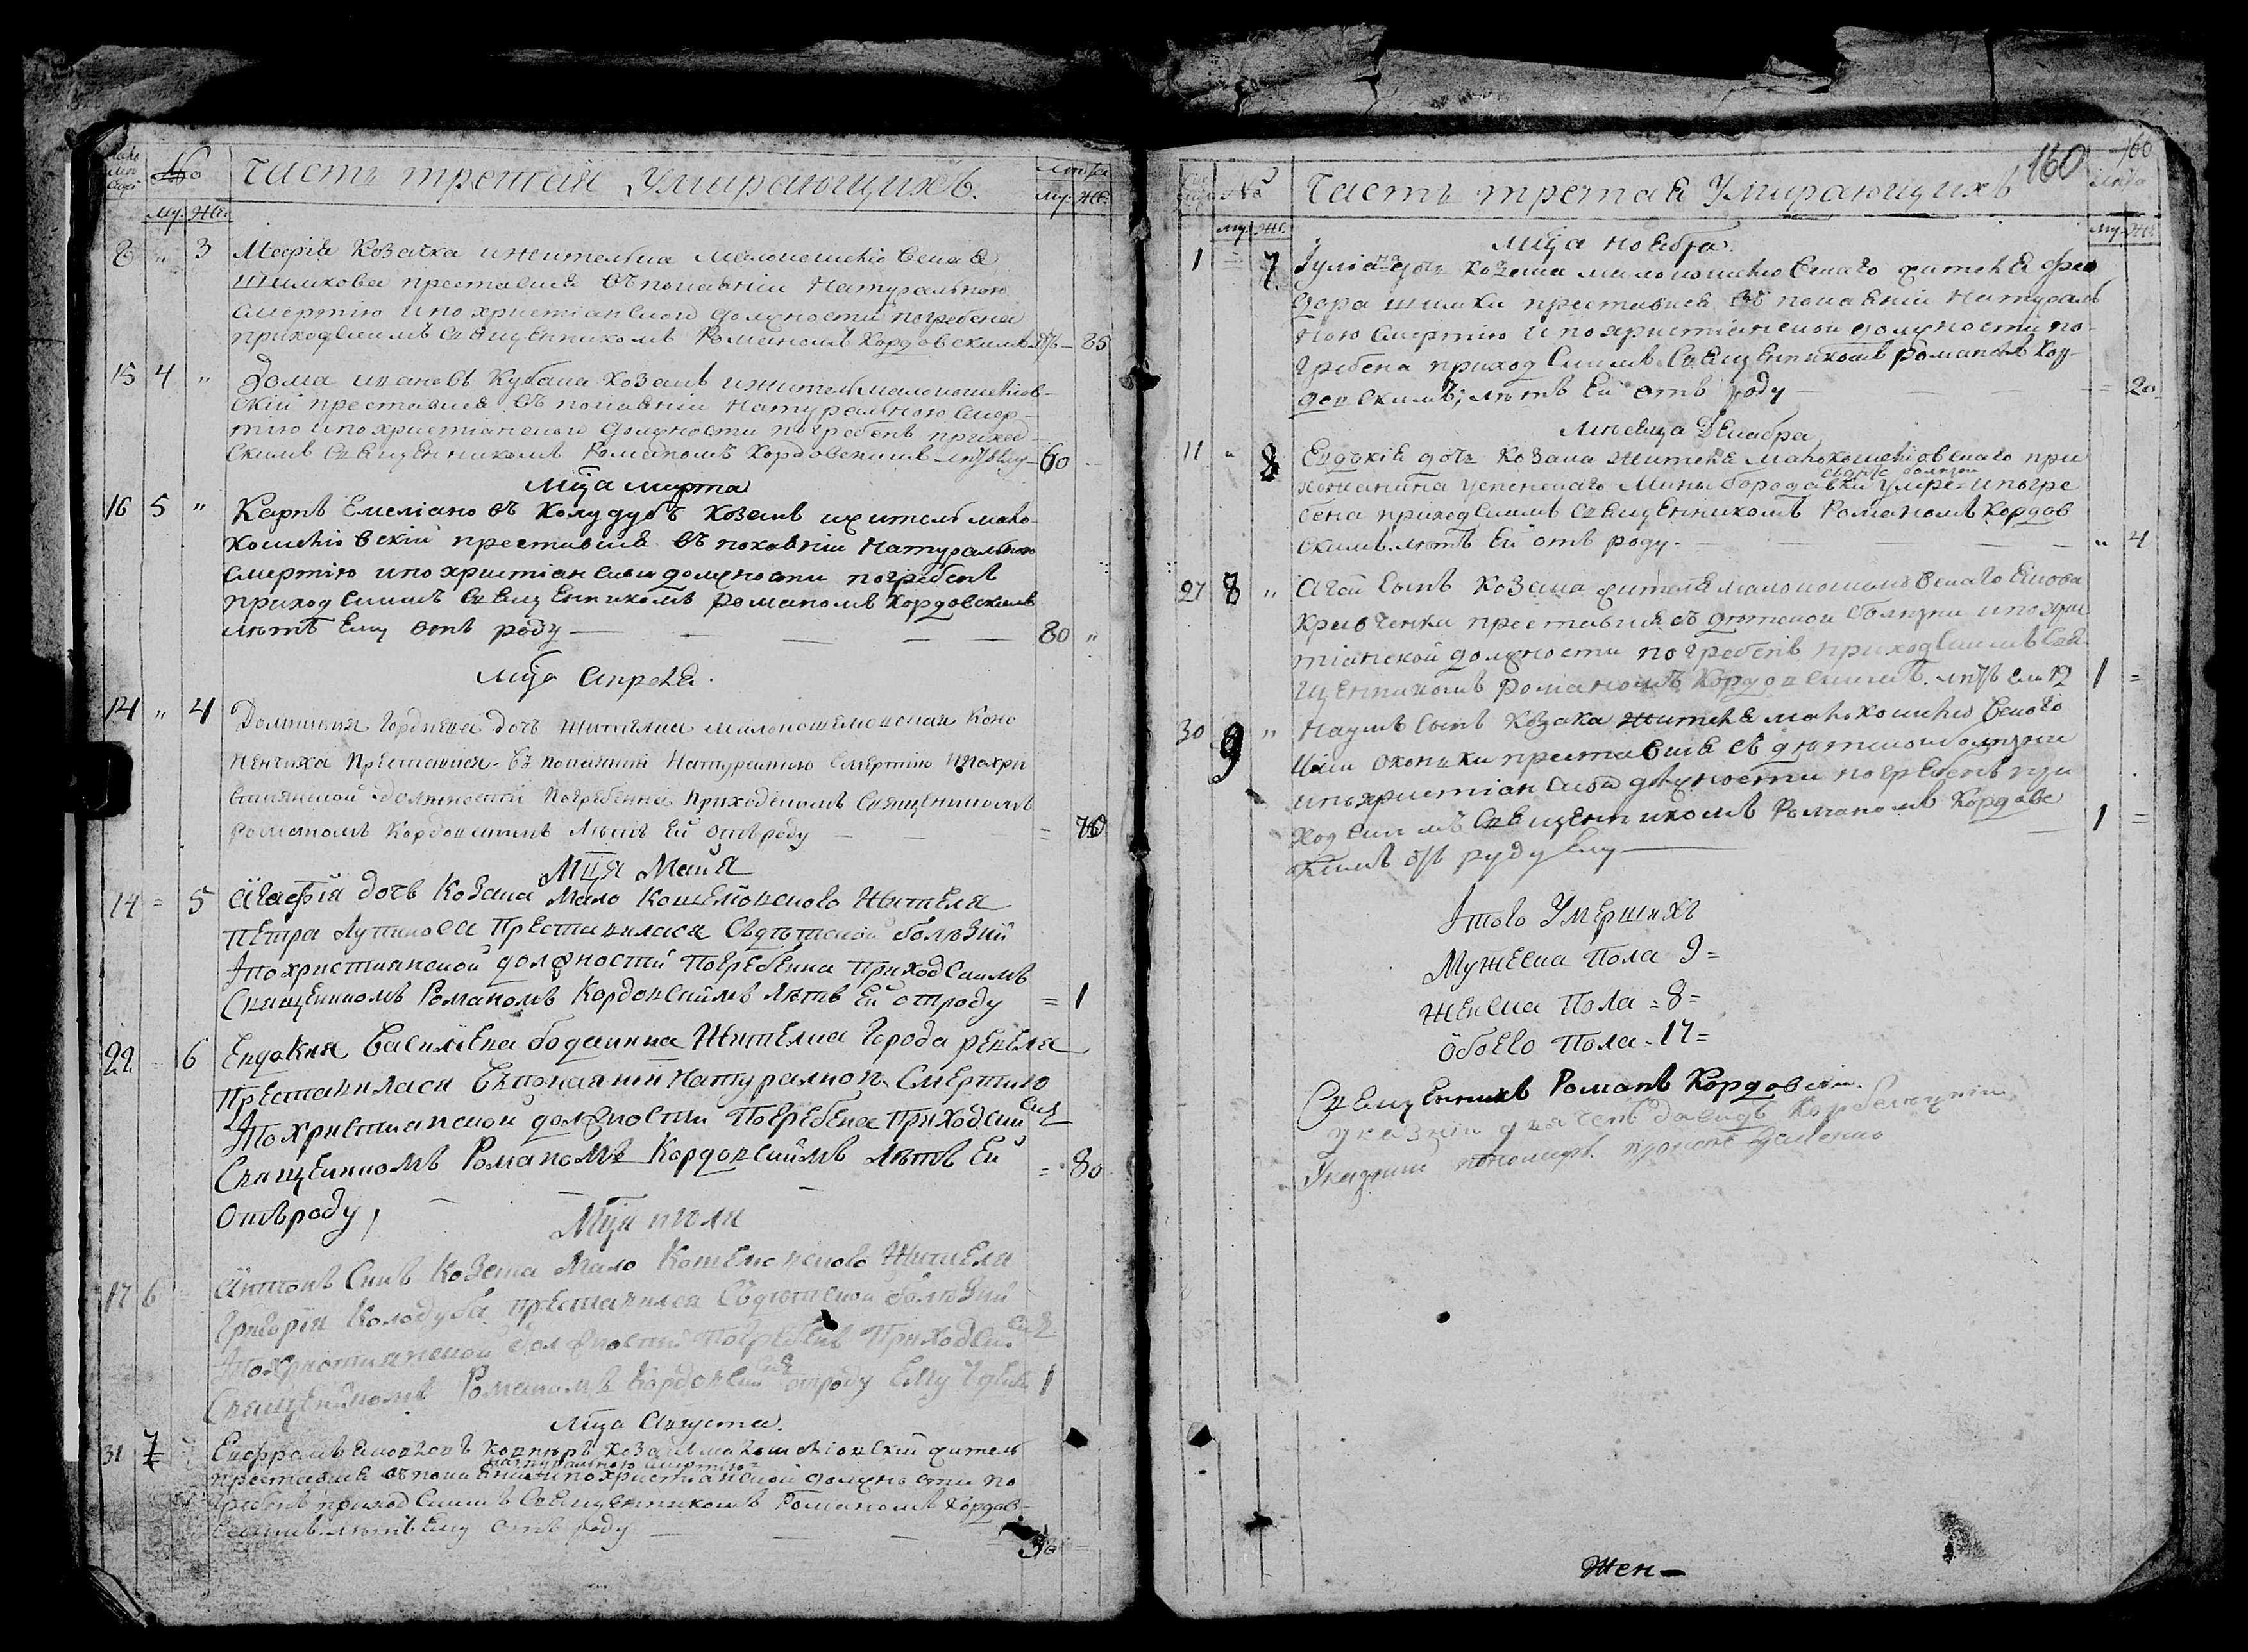 №
Часть третая Умирающихъ.
Лѣта
му. же.
му. же.
8 " 3 Марія Козачка и жителка Малокошелѣовская
Шиликова преставися въ покаяніи натуральною
смертію и по христіанской должности погребена
приходскимъ священникомъ Романомъ Кордовскимъ лѣтъ 85
15 4 " Дома Ивановъ Кубаца козакъ и житель малокошелѣов-
скій преставися въ покаяніи натуральною смер-
тію и по христіанской должности погребенъ приход-
скимъ священникомъ Романомъ Кордовскимъ лѣтъ ему 60
Мца марта
16 5 " Карпъ Емеліановъ Колудубъ козакъ и житель мало-
кошелѣовскій преставися въ покаяніи натуральною
смертію и по христіанской должности погребенъ
приходскимъ священникомъ Романомъ Кордовскимъ
лѣтъ ему отъ роду 80 "
Мца Апреля.
14 " 4 Гордиева дочь жителка малокошелювская Коно
ненчиха преставися въ покаянии натуралною смертию и по хри
стиянской должности погребенна приходскимъ священникомъ
Романомъ Кордовскимъ лѣтъ ей отъ роду = 70
Мця Майя
14 = 5 Агафія дочь козака мало кошелювского жителя
Петра преставилася съ дѣтской болѣзни
і по християнской должности погребенна приходскимъ
священикомъ Романомъ Кордовскимъ лѣтъ ей от роду = 1
22 = 6 Евдокия Василиева жителка города Ревеля
преставилася въ покаянии натуралною смертию
і по християнской должности погребена приходским
священникомъ Романомъ Кордовскимъ лѣтъ ей = 80
отъ роду,
Мця июля
17 6 Антонъ синъ козака мало кошелювского жителя
Григорія Колодуба преставился съ дѣтской болѣзни
і по християнской должности погребенъ приходским
священикомъ Романомъ Кордовским от роду ему 1
Мца Августа.
31 7 Евфремъ козакъ малокошелѣовскій житель
натуральною смертію
преставися въ покаяніи и по христіанской должности по
гребенъ приходскимъ священникомъ Романомъ Кордов-
скимъ лѣтъ ему отъ роду
160
160
№
Часть третая Умирающихъ
Лѣта
му. же.
му. же.
Мца ноября.
1 = 7 Іуліа дочь козака малокошелѣовскаго жителя Фео
дора Шилика преставися въ покаяніи натураль
ною смертію и по христіанской должности по-
гребена приходскимъ священникомъ Романомъ Кор-
довскимъ; лѣтъ ей отъ роду = 20
Месяца Декабря
11 " 8 Евдокія дочь козака жителя малокошелѣовскаго при
хожанина успенскаго Мины Бородавки умре и погре
бена приходскимъ священникомъ Романомъ Кордов
скимъ лѣтъ ей отъ роду " 4
27 8 " сынъ козака жителя малокошелѣовскаго Якова
Кравченка преставися въ дѣтской болѣзни и по хрис
тіанской должности погребенъ приходскимъ свя-
щенникомъ Романомъ Кордовскимъ лѣтъ ему 1 =
30 9 " Наумъ сынъ козака жителя малокошелѣовского
преставися въ дѣтской болѣзни
и по христіанской должности погребенъ при
ходскимъ священникомъ Романомъ Кордов 1 =
скимъ отъ роду ему
Ітого умершихъ
Мужеска пола 9 =
Женска пола = 8 =
Обоего пола - 17 =
Священникъ Романъ Кордовскій.
указній дячекъ Давидъ Корбелецкій
Указний пономарь
Жен-